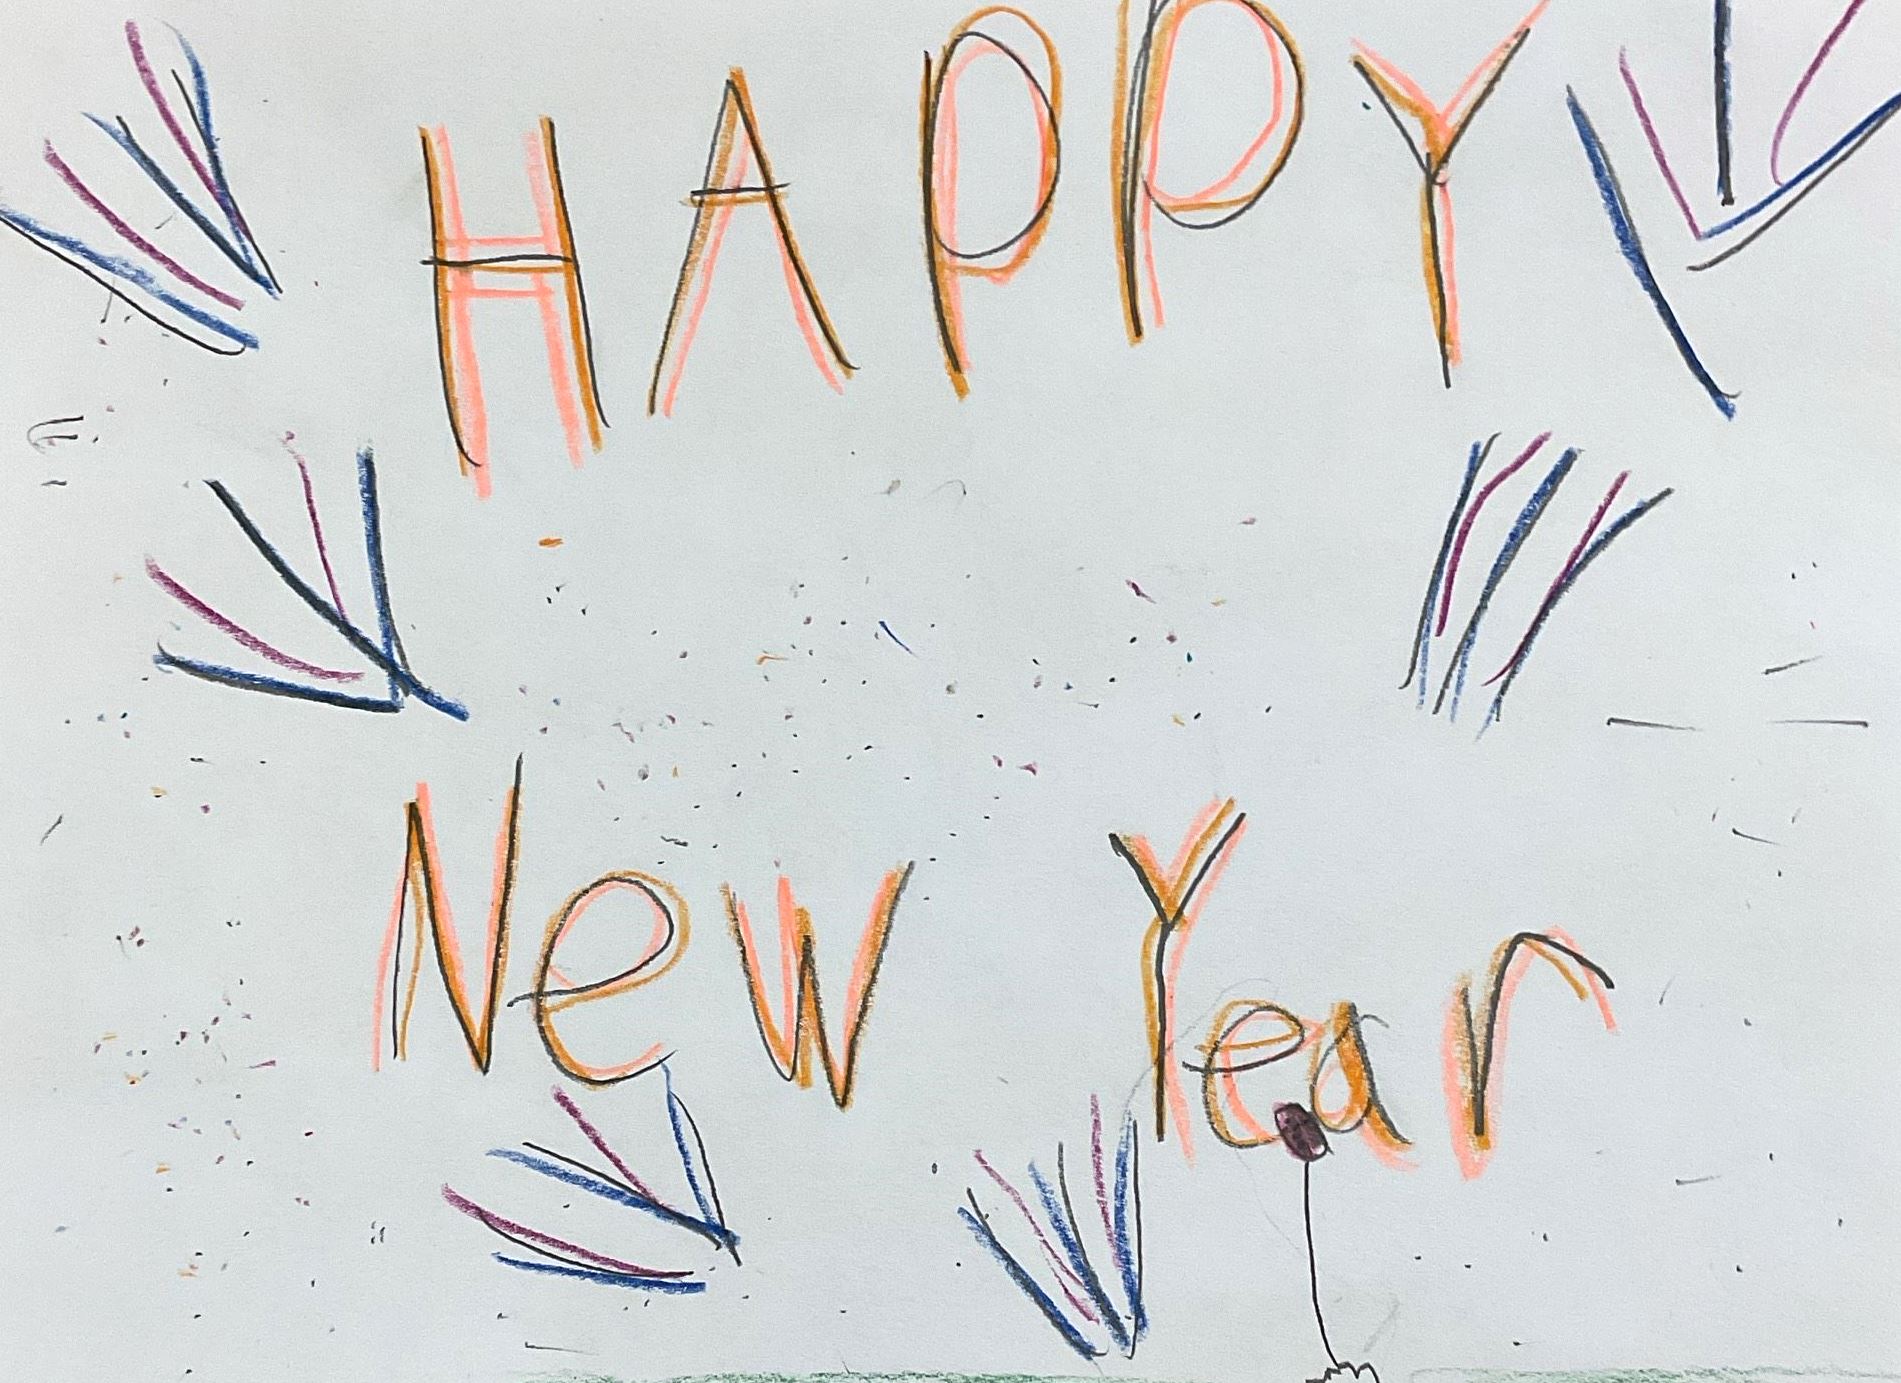 HAPPY
New Year